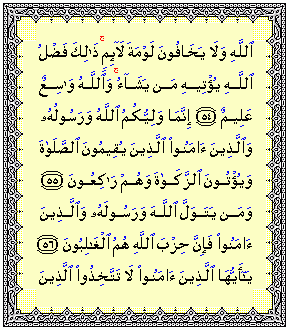 ٱللَّهِ وَلَا يَخَافُونَ لَوْمَةَ لَآئِمٍۢ ۚ ذَٰلِكَ فَضْلُ
ٱللَّهِ يُؤْتِيهِ مَن يَشَآءُ ۚ وَٱللَّهُ وَٰسِعٌ
عَلِيمٌ ﴿٥٤﴾ إِنَّمَا وَلِيُّكُمُ ٱللَّهُ وَرَسُولُهُۥ
وَٱلَّذِينَ ءَامَنُوا۟ ٱلَّذِينَ يُقِيمُونَ ٱلصَّلَوٰةَ
وَيُؤْتُونَ ٱلزَّكَوٰةَ وَهُمْ رَٰكِعُونَ ﴿٥٥﴾
وَمَن يَتَوَلَّ ٱللَّهَ وَرَسُولَهُۥ وَٱلَّذِينَ
ءَامَنُوا۟ فَإِنَّ حِزْبَ ٱللَّهِ هُمُ ٱلْغَٰلِبُونَ ﴿٥٦﴾
يَٰٓأَيُّهَا ٱلَّذِينَ ءَامَنُوا۟ لَا تَتَّخِذُوا۟ ٱلَّذِينَ